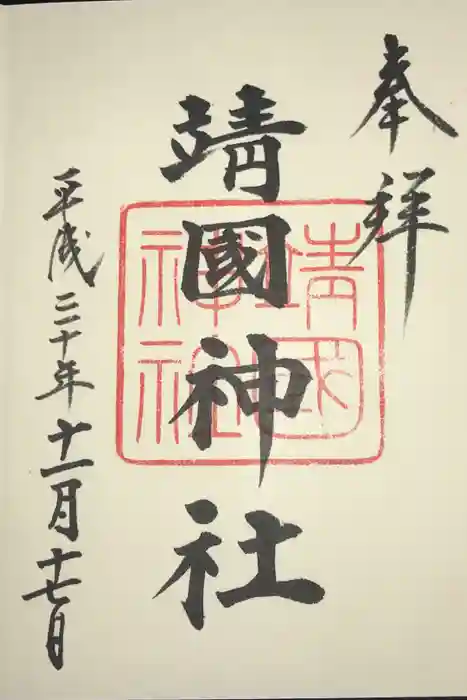 奉拝
靖國神社
靖國神社
平成三十年十一月十七日